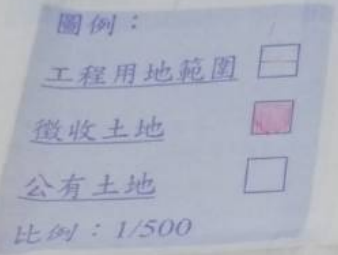 圖例：
工程用地範圍
徵收土地
公有土地
比例：1/500